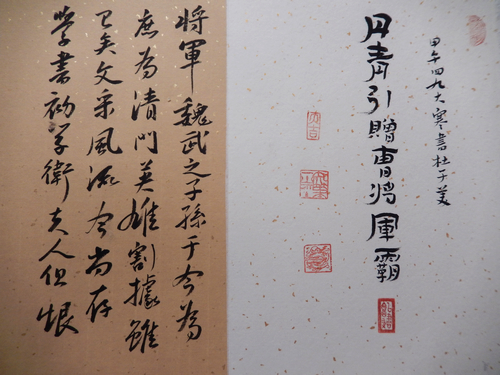 甲午四九大寒書杜子美
丹青引贈曹將軍霸
大吉
將軍魏武之子孫于今為
庶為清門英雄割據雖
已矣文采風流今尚存
學書初学衛夫人但恨